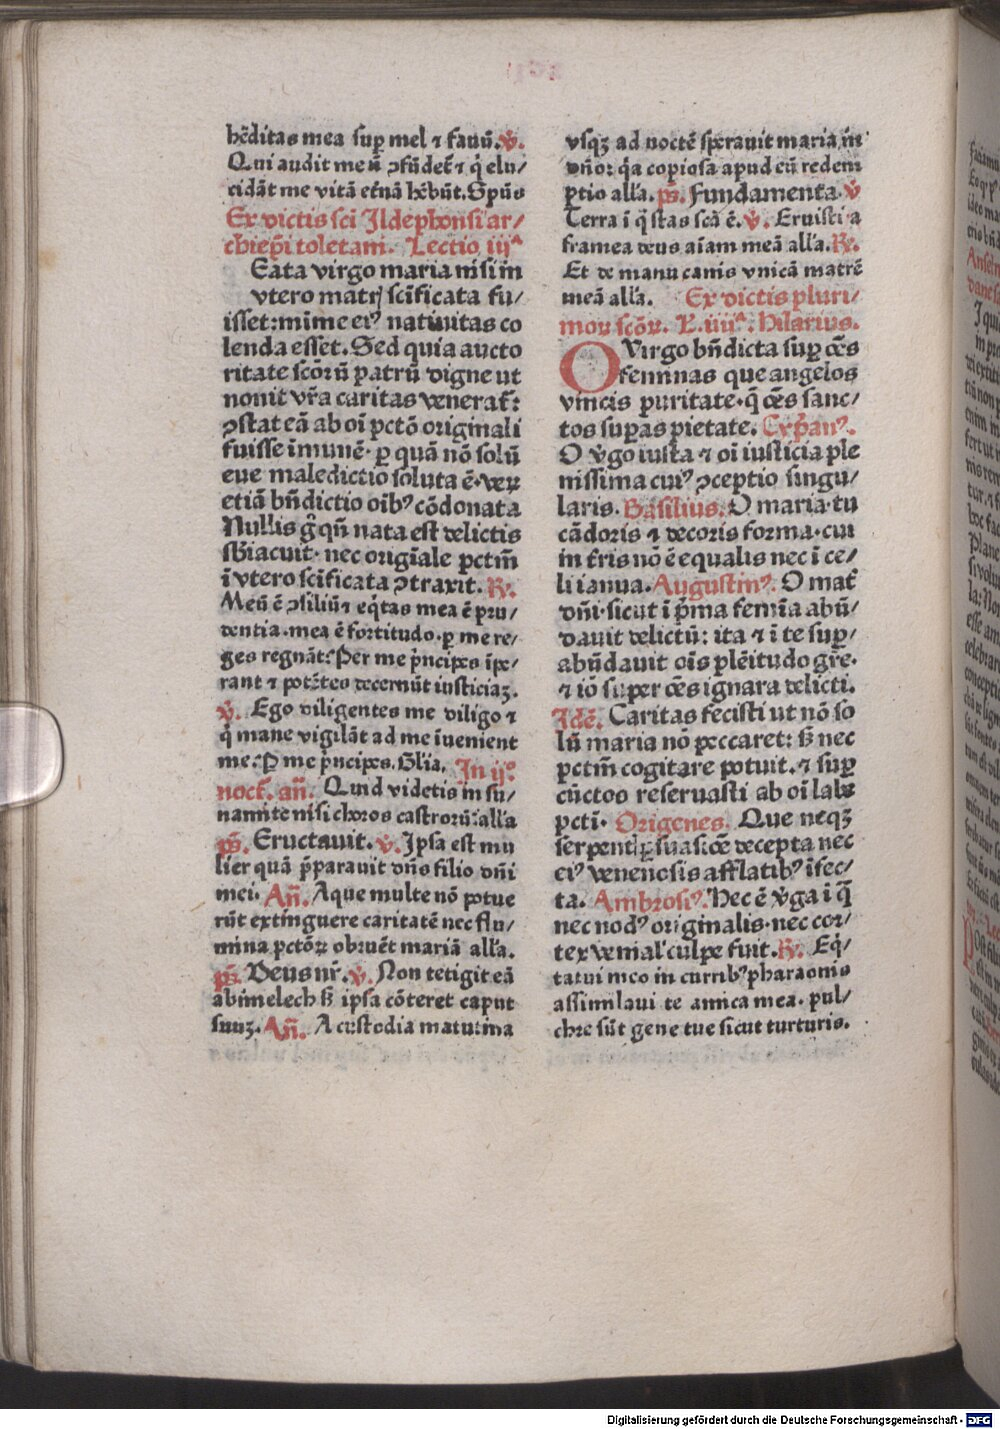 hẽditas mea suꝑ mel ⁊ fauũ. ℣.
Qui audit me ñ ꝯfũdet̃ ⁊ q̇ elu/
cidãt me vitã et̃nã hẽbũt. Spũs
Ex dictis sci Ildephonsi ar/
chiep̃i toletani. Lectio iijᵃ
Eata virgo maria nisi in
vtero matrꝭ scĩficata fu/
isset: mĩme eiꝰ natiuitas co
lenda esset. Sed quia aucto
ritate scõꝝ patrũ digne ut
nouit vr̃a caritas venerat̃:
ꝯstat eã ab oĩ pctõ originali
fuisse ĩmunẽ. ꝑ quã nõ solũ
eue maledictio soluta ẽ. veꝝ
etiã bñdictio oĩbꝰ cõdonata
Nullis g̃ qñ nata est delictis
sb̃iacuit. nec origĩale pctm̃
ĩ vtero scĩficata ꝯtraxit. ℟.
Meũ ẽ ꝯsiliũ ⁊ eq̇tas mea ẽ pru/
dentia. mea ẽ fortitudo. ꝑ me re/
ges regnãt: Per me p̃ncipes ĩpe/
rant ⁊ potẽtes decernũt iusticiaꝫ.
℣. Ego diligentes me diligo ⁊
q̇ mane vigilãt ad me ĩuenient
me. P̱ me p̃ncipes. Glia. In ijº
noct̃. añ. Quid videtis in su/
namite nisi choros castroꝝ: alla
p̃s. Eructauit. ℣. Ipsa est mu
lier quã p̃parauit dñs filio dñi
mei. Añ. Aque multe nõ potue
rũt extinguere caritatẽ nec flu/
mina pctõꝝ obruẽt mariã alla.
p̃s. Deus nr̃. ℣. Non tetigit eã
abimelech sꝫ ipsa cõteret caput
suuꝫ. Añ. A custodia matutina
vsqꝫ ad noctẽ sperauit maria in
dño: q̇a copiosa apud eũ redem
ptio alla. p̃s. Fundamenta. ℣
Terra ĩ q̃ stas scã ẽ. ℣. Eruisti a
framea deus aĩam meã alla. ℟.
Et de manu canis vnicã matrẽ
meã alla. Ex dictis pluri/
moꝝ scõꝝ. L. iiijᵃ. Hilarius.
O Virgo bñdicta suꝑ oẽs
feminas que angelos
vincis puritate. q̃ oẽs sanc/
tos suꝑas pietate. Cyp̃anꝰ.
O v̇go iusta ⁊ oĩ iusticia ple
nissima cuiꝰ ꝯceptio singu/
laris. Basilius. O maria tu
cãdoris ⁊ decoris forma. cui
in t̃ris nõ ẽ equalis nec ĩ ce/
li ianua. Augustinꝰ. O mat̃
dñi. sicut ĩ p̃ma femĩa abũ/
dauit delictũ: ita ⁊ ĩ te suꝑ/
abũdauit oĩs plẽitudo gr̃e.
⁊ iõ super oẽs ignara delicti.
Idẽ. Caritas fecisti ut nõ so
lũ maria nõ peccaret: sꝫ nec
pctm̃ cogitare potuit. ⁊ suꝑ
cũctos reseruasti ab oĩ labe
pcti. Origenes. Que neqꝫ
serpentis suasiõe decepta nec
eiꝰ venenosis afflatibꝰ ĩfec/
ta. Ambrosiꝰ. Hec ẽ v̇ga ĩ q̃
nec nodꝰ originalis. nec cor/
tex venial' culpe fuit. ℟. Eq̇/
tatui meo in curribꝰ pharaonis
assimilaui te amica mea. pul/
chre sũt gene tue sicut turturis.
Digitalisierung gefördert durch die Deutsche Forschungsgemeinschaft - DFG